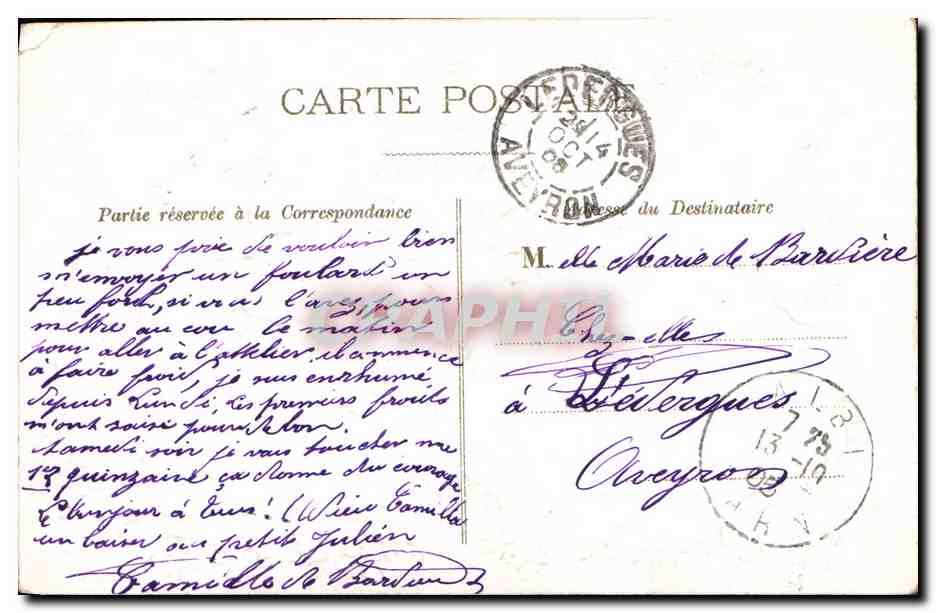 CARTE POSTALE
LEDERGUES
29 14
OCT
AVEYRON
Partie réservée à la Correspondance
Adresse du Destinataire
je vous prie de vouloir bien
m'envoyer un foulard un
peu fort, si vous l'avez, pour
mettre au cou le matin
pour aller à l'attelier, il commence
à faire froid, je suis enrhumé
depuis Lundi, les premiers froids
m'ont saisi pour de bon.
Samedi soir je vais toucher ma
quinzaine ça donne du courage
bonjour à tous!
un baiser au petit Julien
Camille de Bardiere
M. elle Marie de Bardière
Chez-elle
à Lédergues
Aveyron
ALBI
13 -10
TARN
CPAPHIL